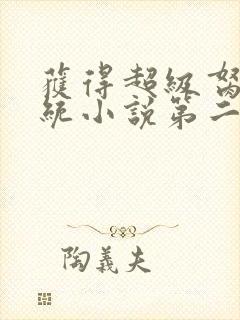 獲得超級
統小說第二
陶義夫